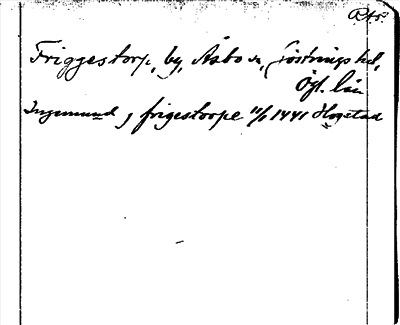 RAp.
Friggestorp, by, Åsbo sn, Göstrings hd,
Ögl. län
Ingemund j frigestorpe 11/1 1441 Hogstad